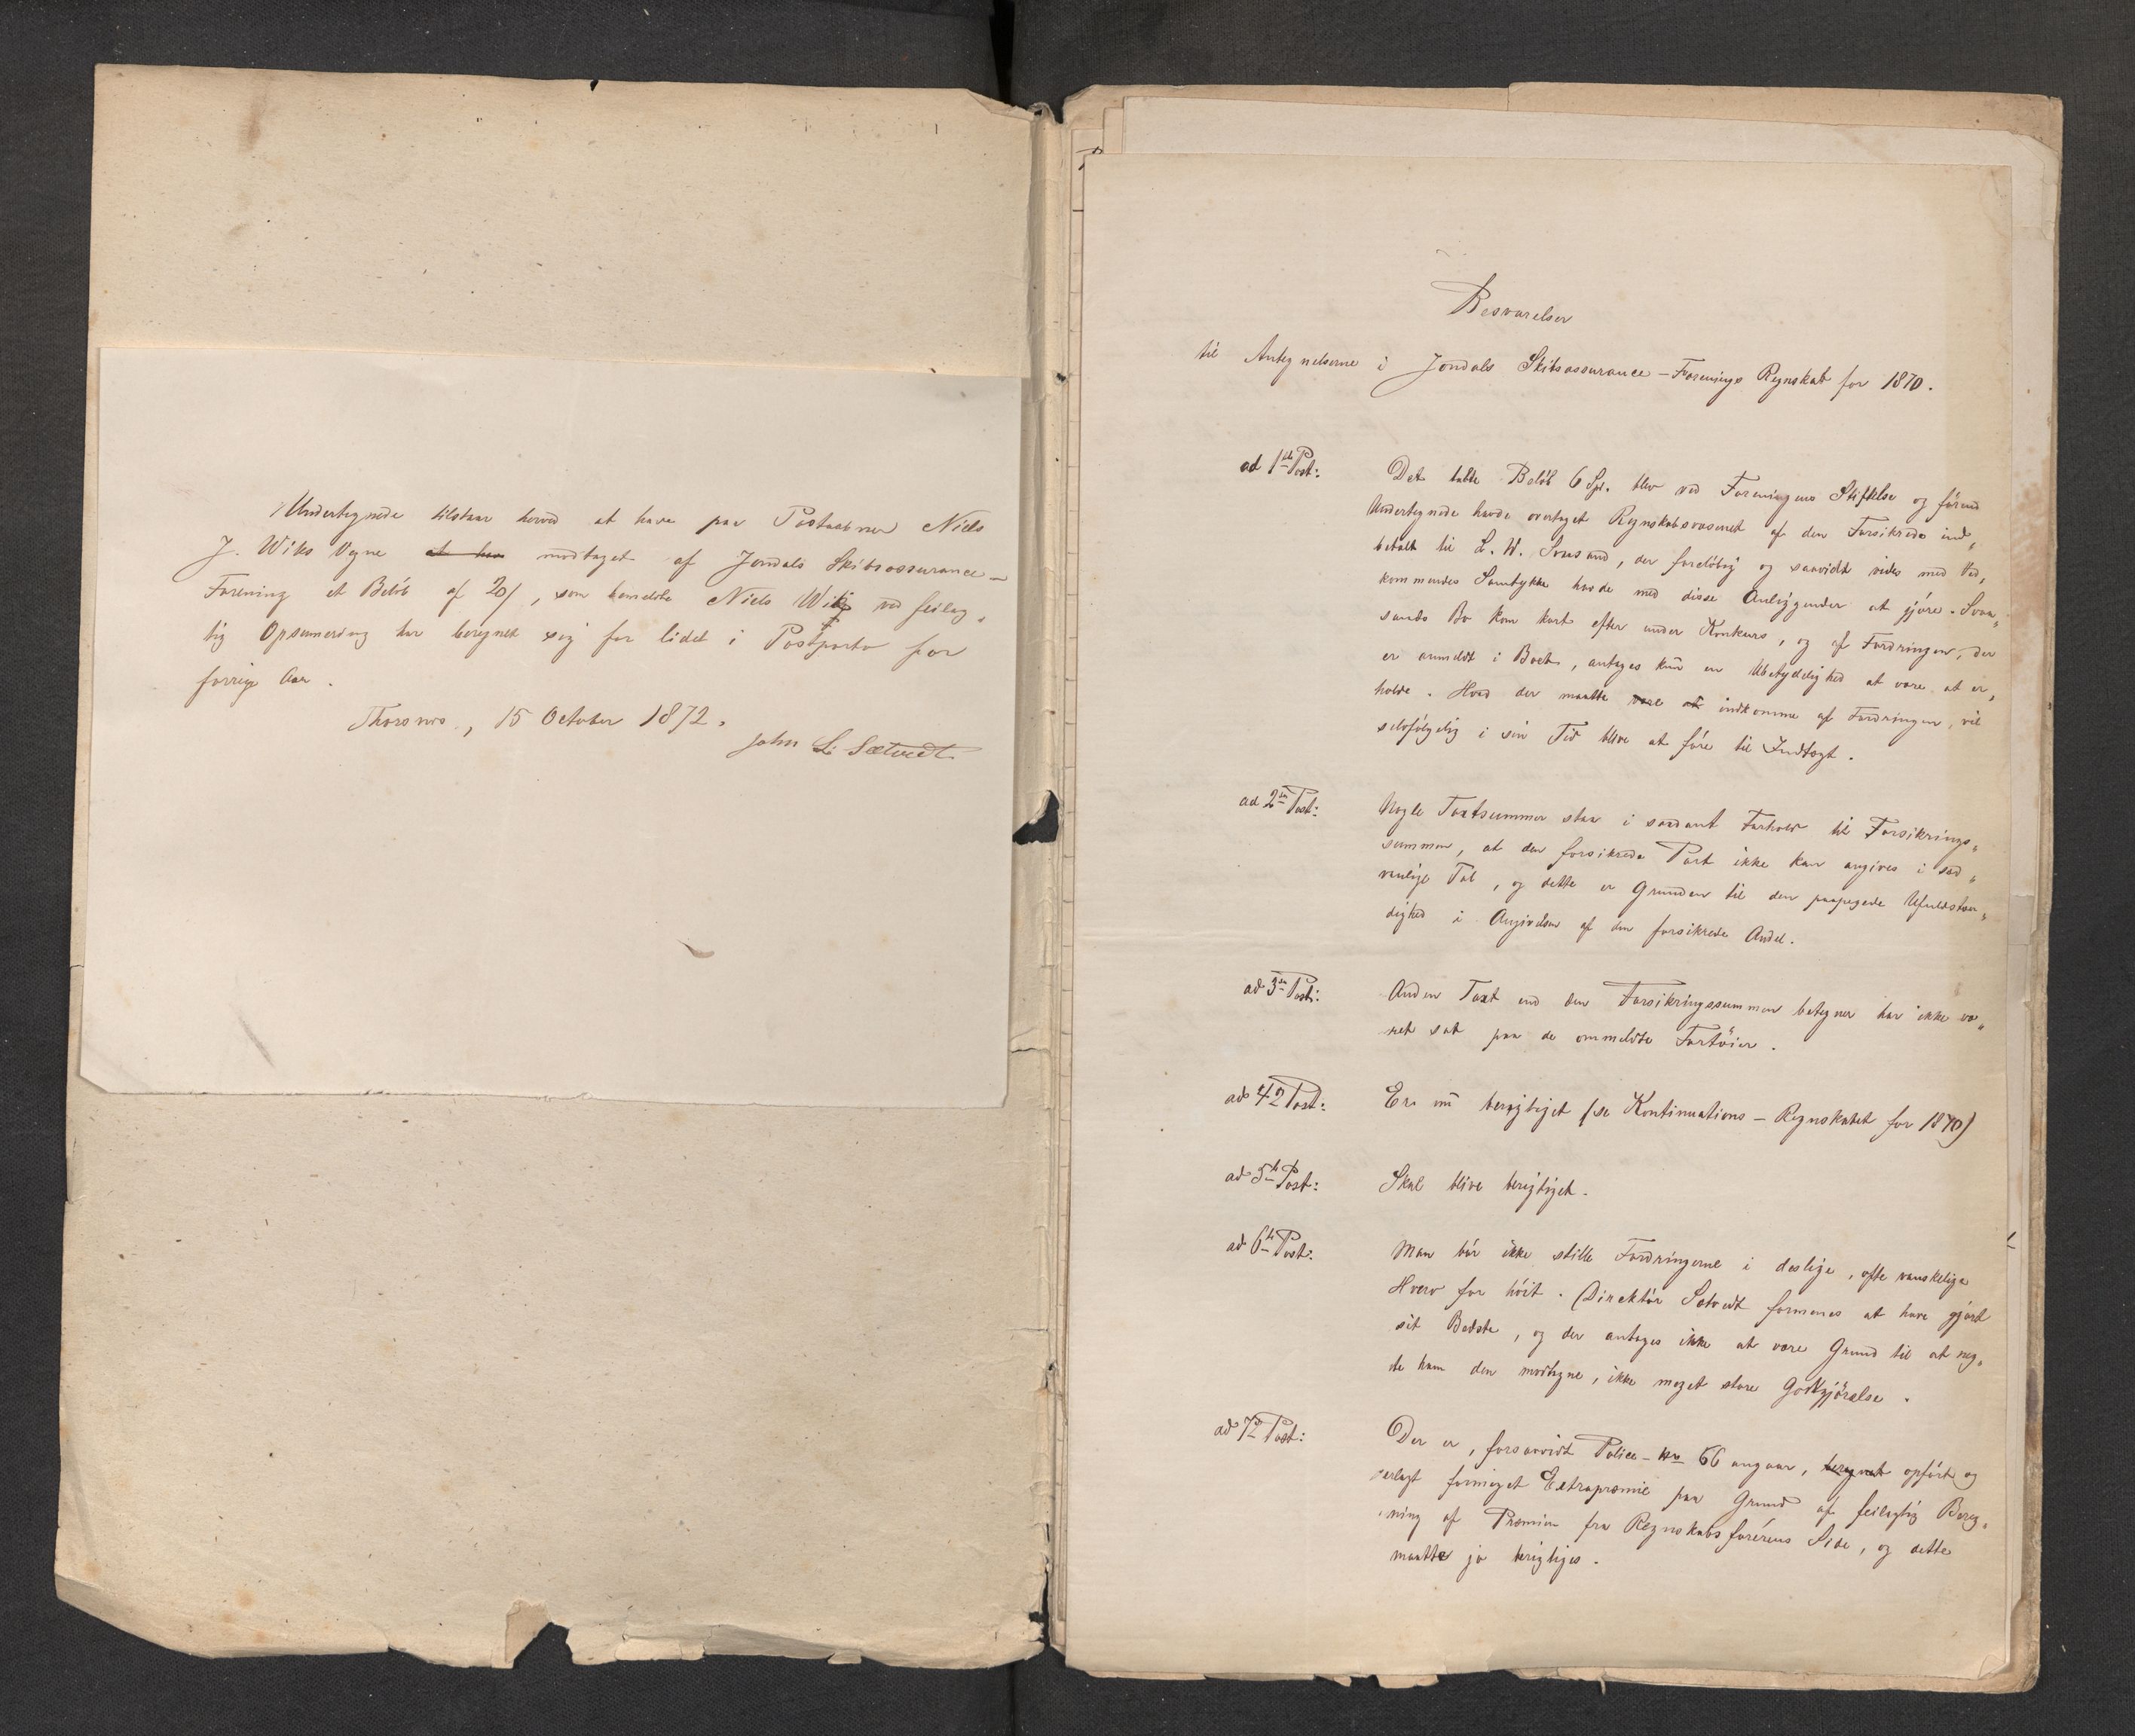 Undertegnede tilstaar herved at have paa Postaabner Niels
J. Wiks Vegne at hav modtaget af Jondals Skibsassurance-
Forening et Beløb af 20 /, som bemeldte Niels Wik ved feilag„
tig Opsumering har beregnet sig for lidet i Postporto for
forrige Aar.
Thorsnes, 15 October 1872.
John L. Sætvedt
Besvarelser
til Antegnelserne i Jondals Skibsassurance-Forenings Regnskab for 1870.
ad 1ste Post:
Det tabte Beløb 6 Spd. blev ved Foreningens Stiftelse og førend
Undertegnede havde overtaget Regnskabsvæsenet af den Forsikrede ind„
betalt til L. W. Svasand, der foreløbig og saavidt vides med Ved„
kommendes Samtykke havde med disse Anliggender at gjøre. Svaa„
sands Bo kom kort efter under Konkurs, og af Fordringen, der
er anmeldt i Boet, antages kun en Ubetydelighed at være at er„
holde. Hvad der maatte være at indkomme af Fordringen, vil
selvfølgelig i sin Tid blive at føre til Indtægt.
ad 2den Post:
Nogle Taxtsummer staa i saadant Forhold til Forsikrings„
summen, at den forsikrede Part ikke kan angives i sæd„
vanlige Tal, og dette er Grunden til den paapegede Ufuldstæn„
dighed i Angivelsen af den forsikrede Andel.
ad 3die Post:
Anden Taxt end den Forsikringssummen betegner har ikke væ„
ret sat paa de ommeldte Fartøier.
ad 4de Post:
Er nu berigtiget (se Kontinuations-Regnskabet for 1870)
ad 5te Post:
Skal blive berigtiget.
ad 6te Post:
Man bør ikke stille Fordringerne i deslige, ofte vanskelige
Hverv for høit. Direktør Sætvedt formenes at have gjort
sit Bedste, og der antages ikke at være Grund til at neg„
te ham den modtagne, ikke meget store Godtgjørelse.
ad 7de Post:
Der er, forsaavidt Police-No 66 angaar, beregnet opført og
erlagt formeget Extrapræmie paa Grund af feilagtig Bereg„
ning af Præmien fra Regnskabsførerens Side, og dette
maatte jo berigtiges.